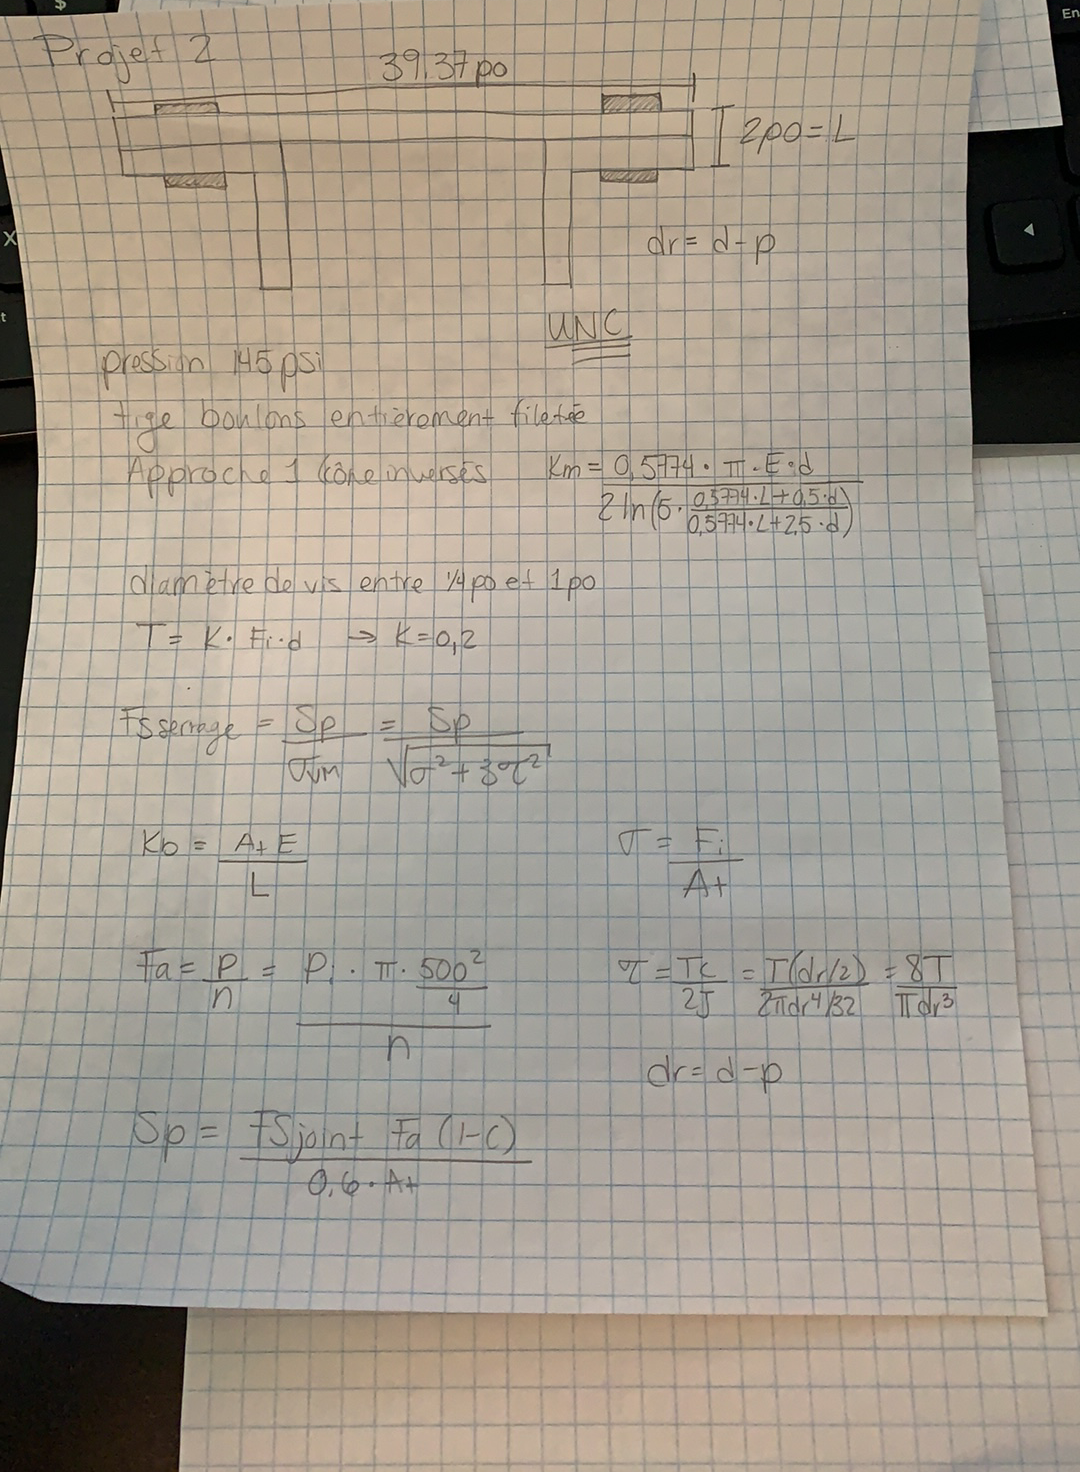 Projet 2
39.37po
2po = L
dr = d-p
UNC
pression 145 psi
tige boulons entièrement filetée
Approche 1 Cône inversés Km = 0,5774 · π · E · d / 2 ln(5 · 0,5774·L+0,5·d / 0,5774·L+2,5·d)
diamètre de vis entre 1/4 po et 1po
T = K · Fi · d → K = 0,2
FSserrage = Sp / σvm = Sp / √σ²+3τ²
Kb = At E / L
σ = Fi / At
Fa = P / n = Pi · π · 500² / 4 / n
τ = Tc / 2J = T(dr/2) / 2πdr⁴/32 = 8T / πdr³
dr = d-p
Sp = FSjoint Fa (1-C) / 0,6 · At